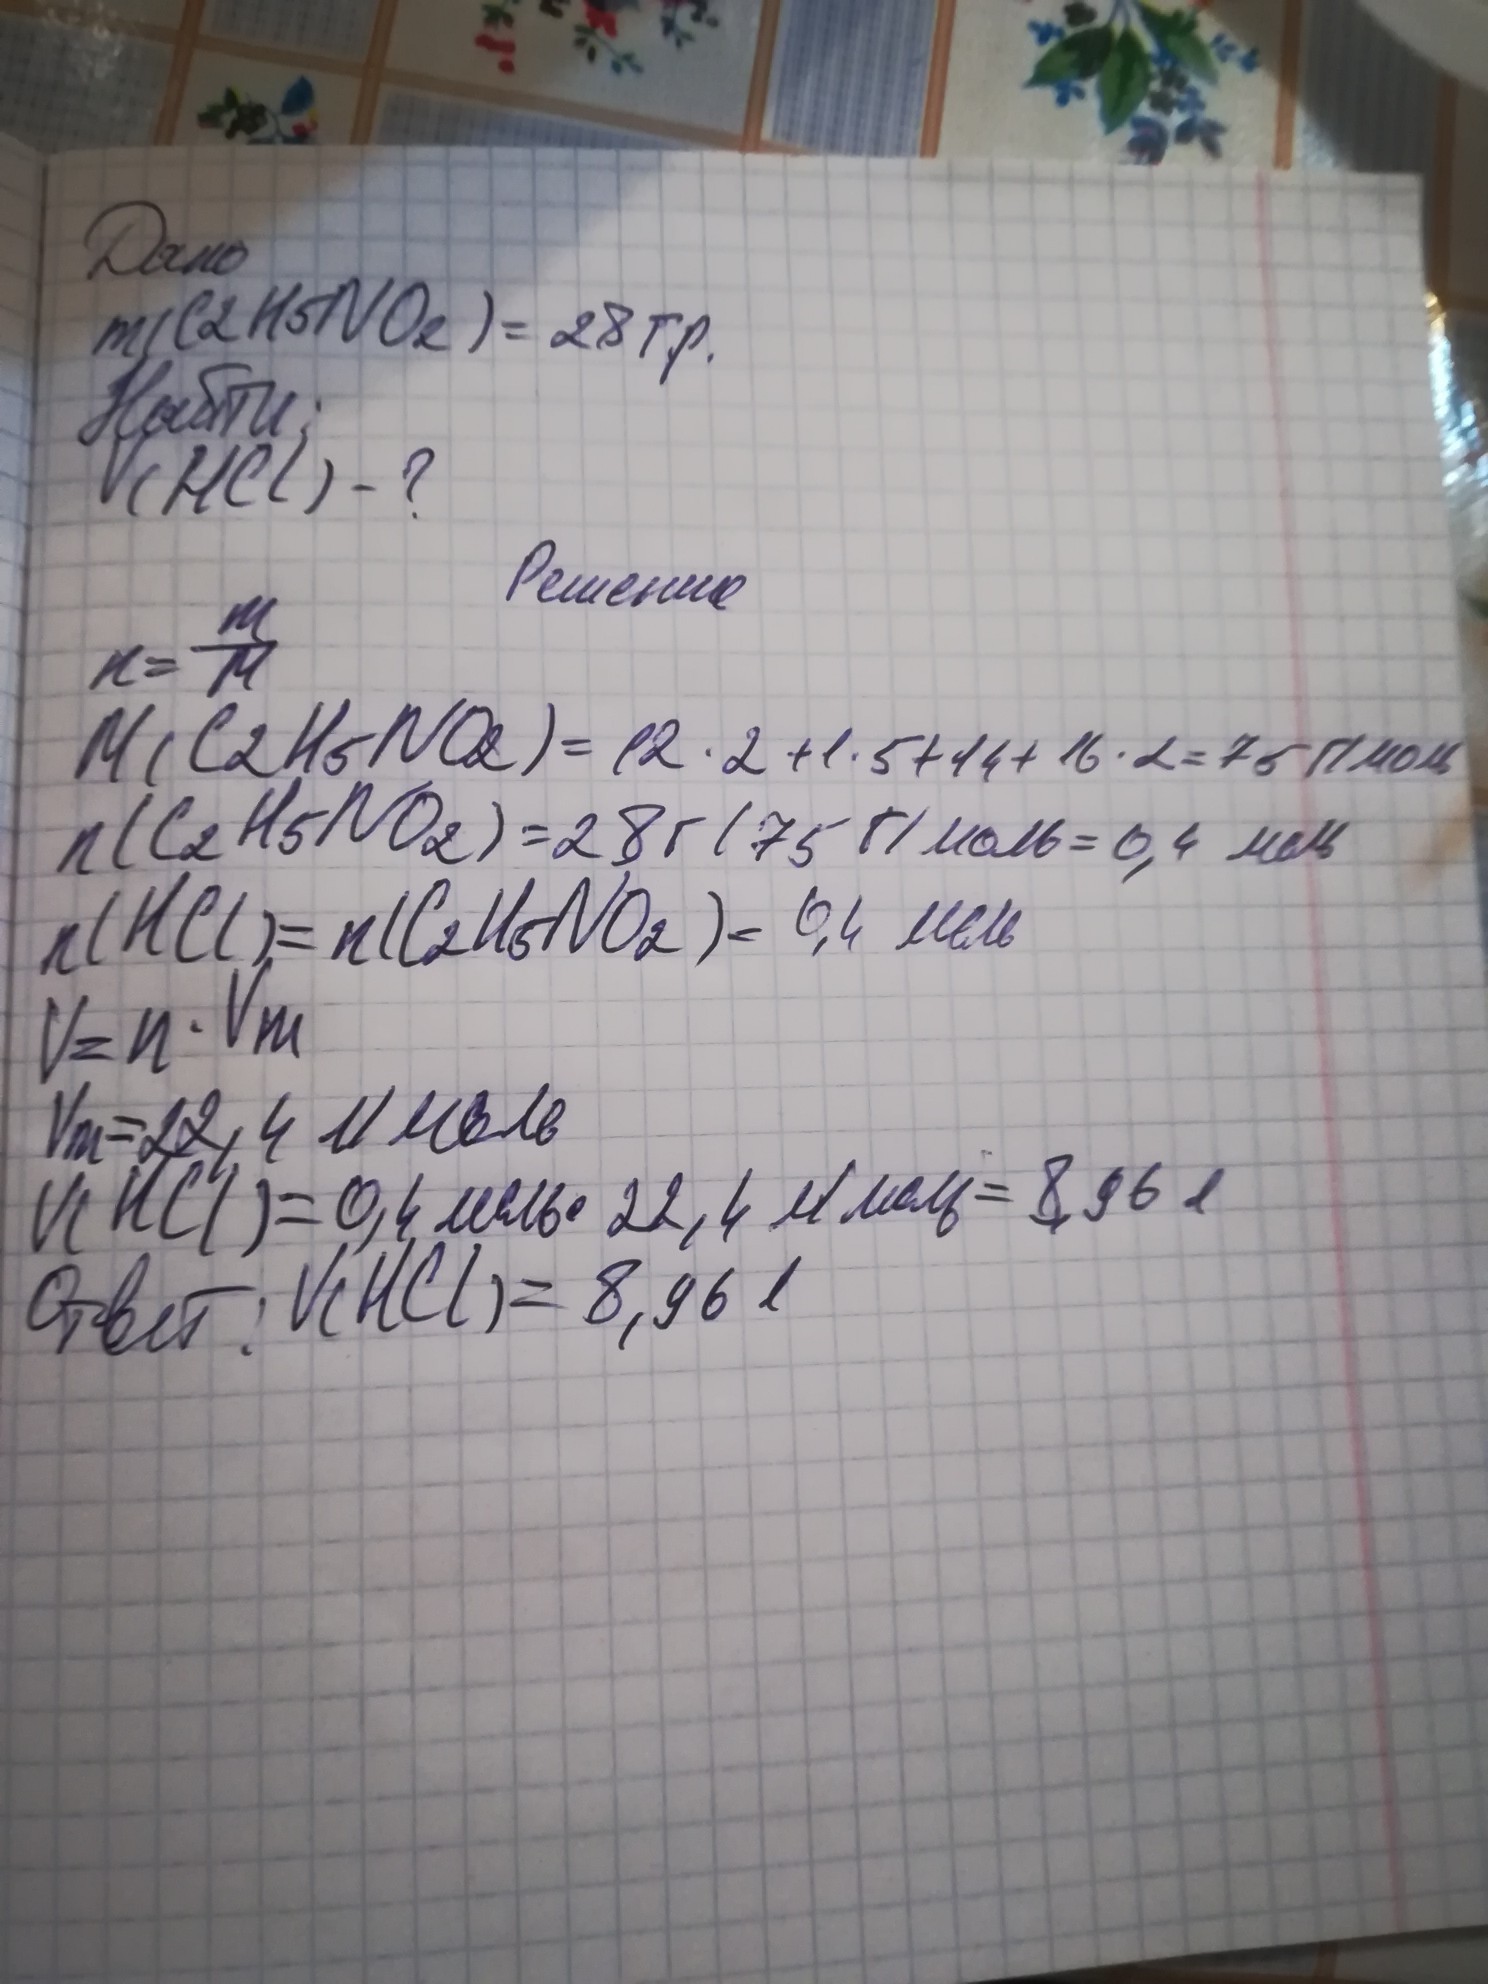 Дано
m(C2H5NO2)=28гр.
Найти:
V(HCl)-?
Решение
n=m/M
M(C2H5NO2)=12·2+1·5+14+16·2=75 г/моль
n(C2H5NO2)=28г/75 г/моль=0,4 моль
n(HCl)=n(C2H5NO2)=0,4 моль
V=n·Vm
Vm=22,4 л/моль
V(HCl)=0,4 моль·22,4 л/моль=8,96 л
Ответ: V(HCl)=8,96 л